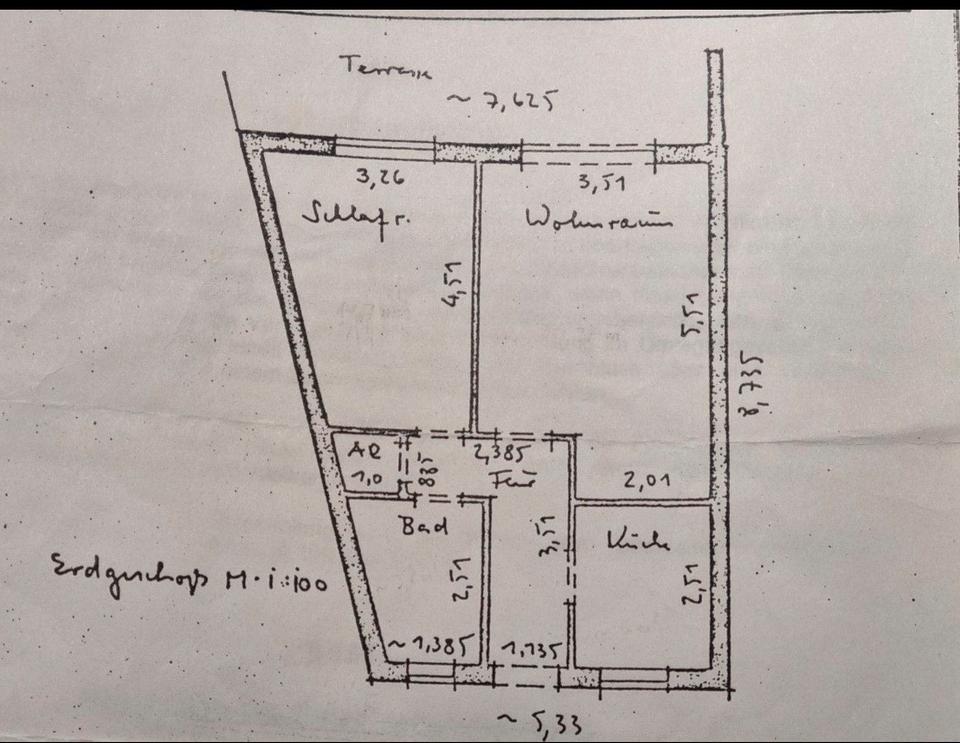 Terrasse
~ 7,625
3,26
3,51
Schlafr.
Wohnraum
4,51
5,51
8,735
AR
1,0
885
2,385
Flur
2,01
Bad
3,51
Küche
Erdgeschoß M. 1:100
2,51
2,51
~ 1,385
1,135
~ 5,33